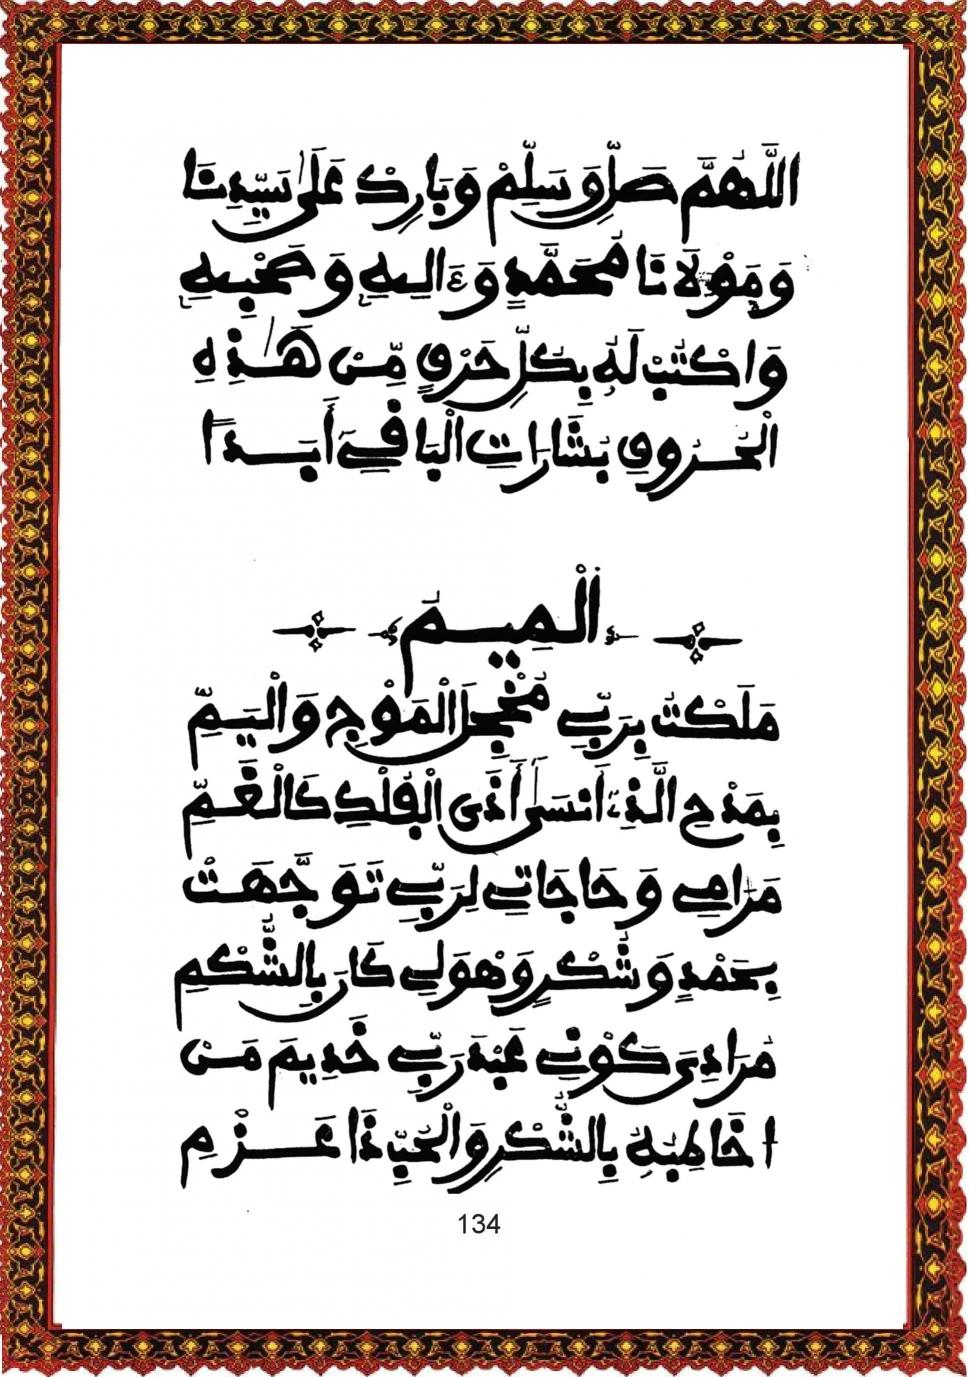 اللَّهُمَّ صَلِّ وَسَلِّمْ وَبَارِكْ عَلَى سَيِّدِنَا
وَمَوْلَانَا مُحَمَّدٍ وَءَالِهِ وَصَحْبِهِ
وَاكْتُبْ لَهُ بِكُلِّ حَرْفٍ مِّنْ هَذِهِ
الْحُرُوفِ بِشَارَاتِ الْبَاقِي أَبَدًا
الْمِيمُ
مَلَكْتُ بِرَبِّي مُخْجِلَ الْمَوْجِ وَالْيَمِّ
بِمَدْحِ الَّذِي أَنْسَى أَذَى الْفُلْكِ كَالْغَمِّ
مَرَامِي وَحَاجَاتِي لِرَبِّي تَوَجَّهَتْ
بِحَمْدٍ وَشُكْرٍ وَهْوَ لِي كَانَ بِالشُّكْمِ
مُرَادِيَ كَوْنِي عَبْدَ رَبِّي خَدِيمَ مَنْ
أُخَاطِبُهُ بِالشُّكْرِ وَالْحُبِّ ذَا عَزْمِ
134